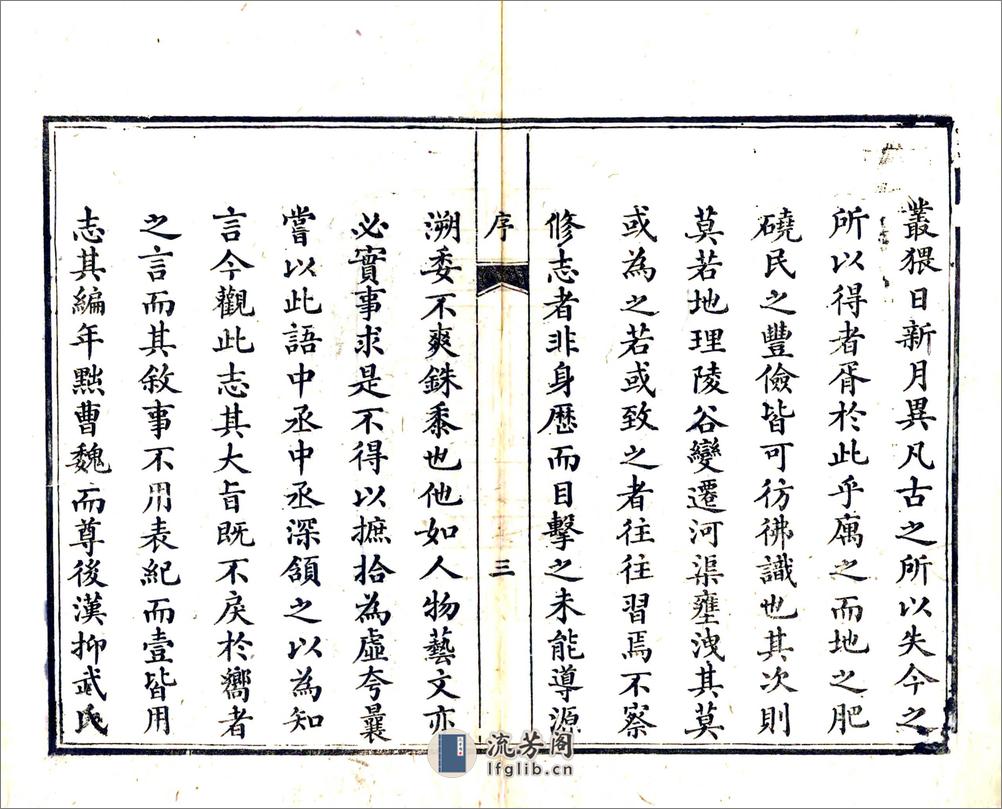 叢猥日新月異凡古之所以失今之
所以得者胥於此乎厲之而地之肥
磽民之豐儉皆可彷彿識也其次則
莫若地理陵谷變遷河渠壅洩其莫
或為之若或致之者往往習焉不察
修志者非身歷而目擊之未能導源
序
三
溯委不爽銖黍也他如人物藝文亦
必實事求是不得以摭拾為虛夸曩
嘗以此語中丞中丞深頷之以為知
言今觀此志其大旨既不戾於嚮者
之言而其敘事不用表紀而壹皆用
志其編年黜曹魏而尊後漢抑武氏
流芳阁
lfglib.cn